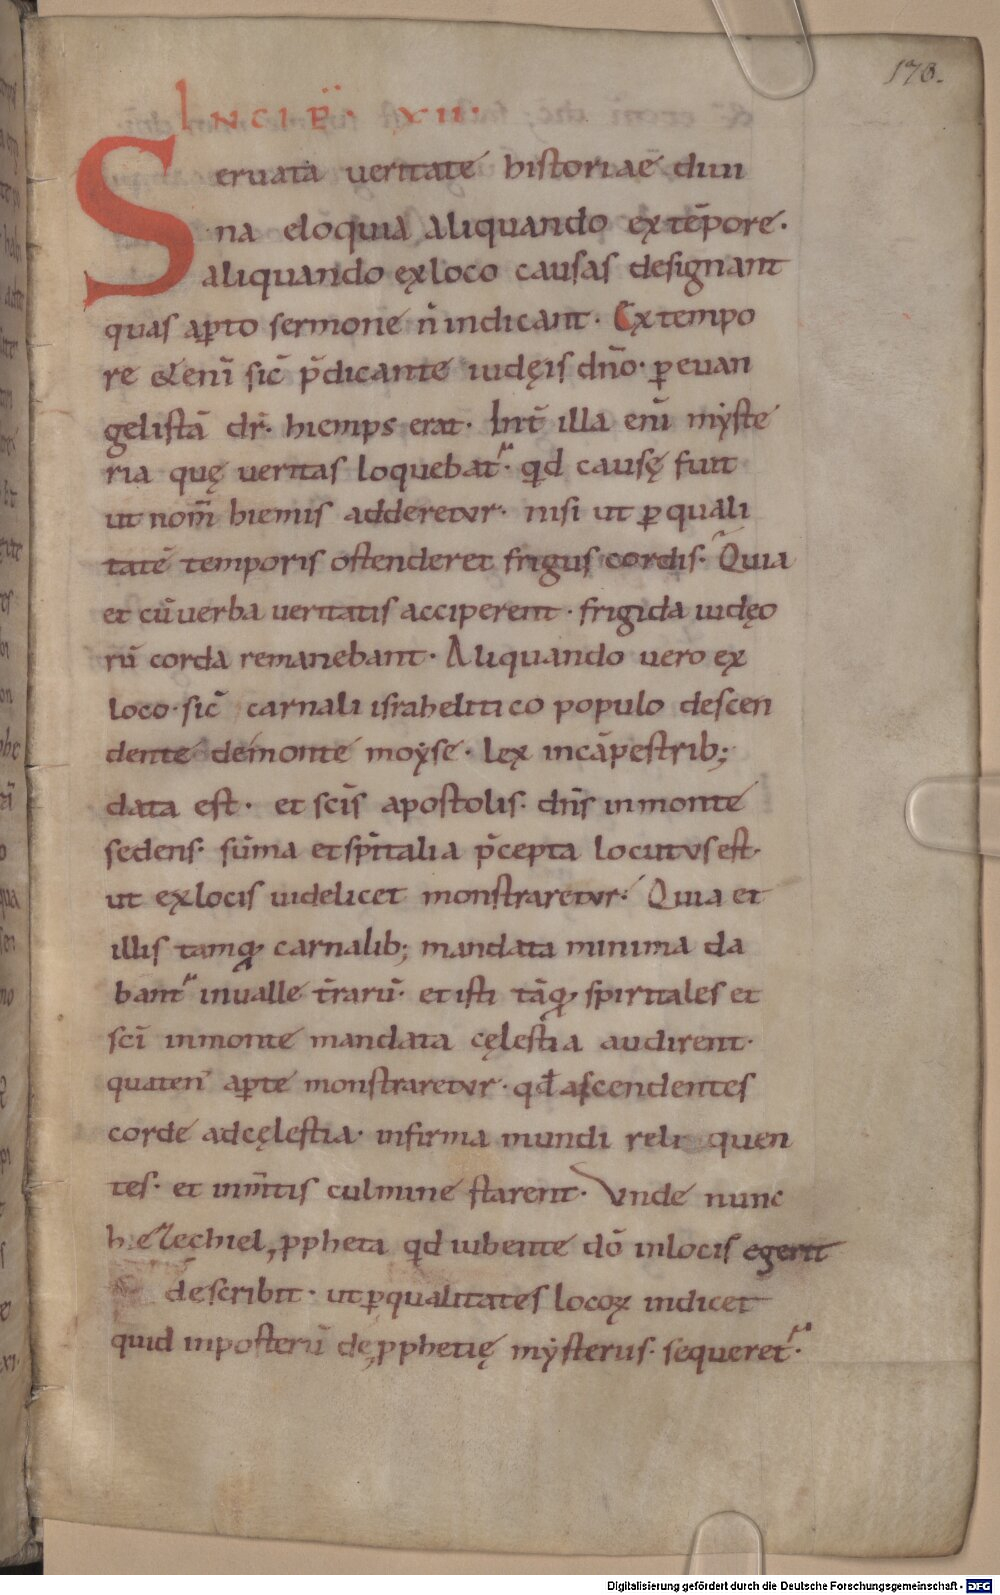 170.
INCIP̄. XII.
Seruata ueritate historiae diui
na eloquia aliquando ex tēpore.
aliquando exloco causas designant
quas apto sermone n̄ indicant. Extempo
re &eni sic̄ p̄dicante iudęis dn̄o. peuan
gelistā dr̄. hiemps erat. Int̄ illa enī mẏste
ria quę ueritas loquebat. qd causę fuit
ut nom̄ hiemis adderetur. nisi ut pquali
tatē temporis ostenderet frigus cordis. Quia
et cū uerba ueritatis acciperent. frigida iudęo
rū corda remanebant. Aliquando uero ex
loco. sic̄ carnali israhelitico populo descen
dente demonte moẏse. lex incāpestrib;
data est. et scīs apostolis. dn̄s inmonte
sedens. sūma etspītalia p̄cepta locutus est.
ut exlocis uidelicet monstraretur. Quia et
illis tamq carnalib; mandata minima da
bant inualle t̄rarū. et isti tāq spiritales et
scī inmonte mandata cęlestia audirent.
quaten apte monstraretur. qđ ascendentes
corde adcęlestia. infirma mundi relinquen
tes. et inm̄tis culmine starent. Vnde nunc
hiezechiel ppheta qd iubente dō inlocis egerit
describit. utpqualitates locoꝝ indicet
quid inposterū de pphetię mẏsteriis. sequeret.
Digitalisierung gefördert durch die Deutsche Forschungsgemeinschaft - DFG